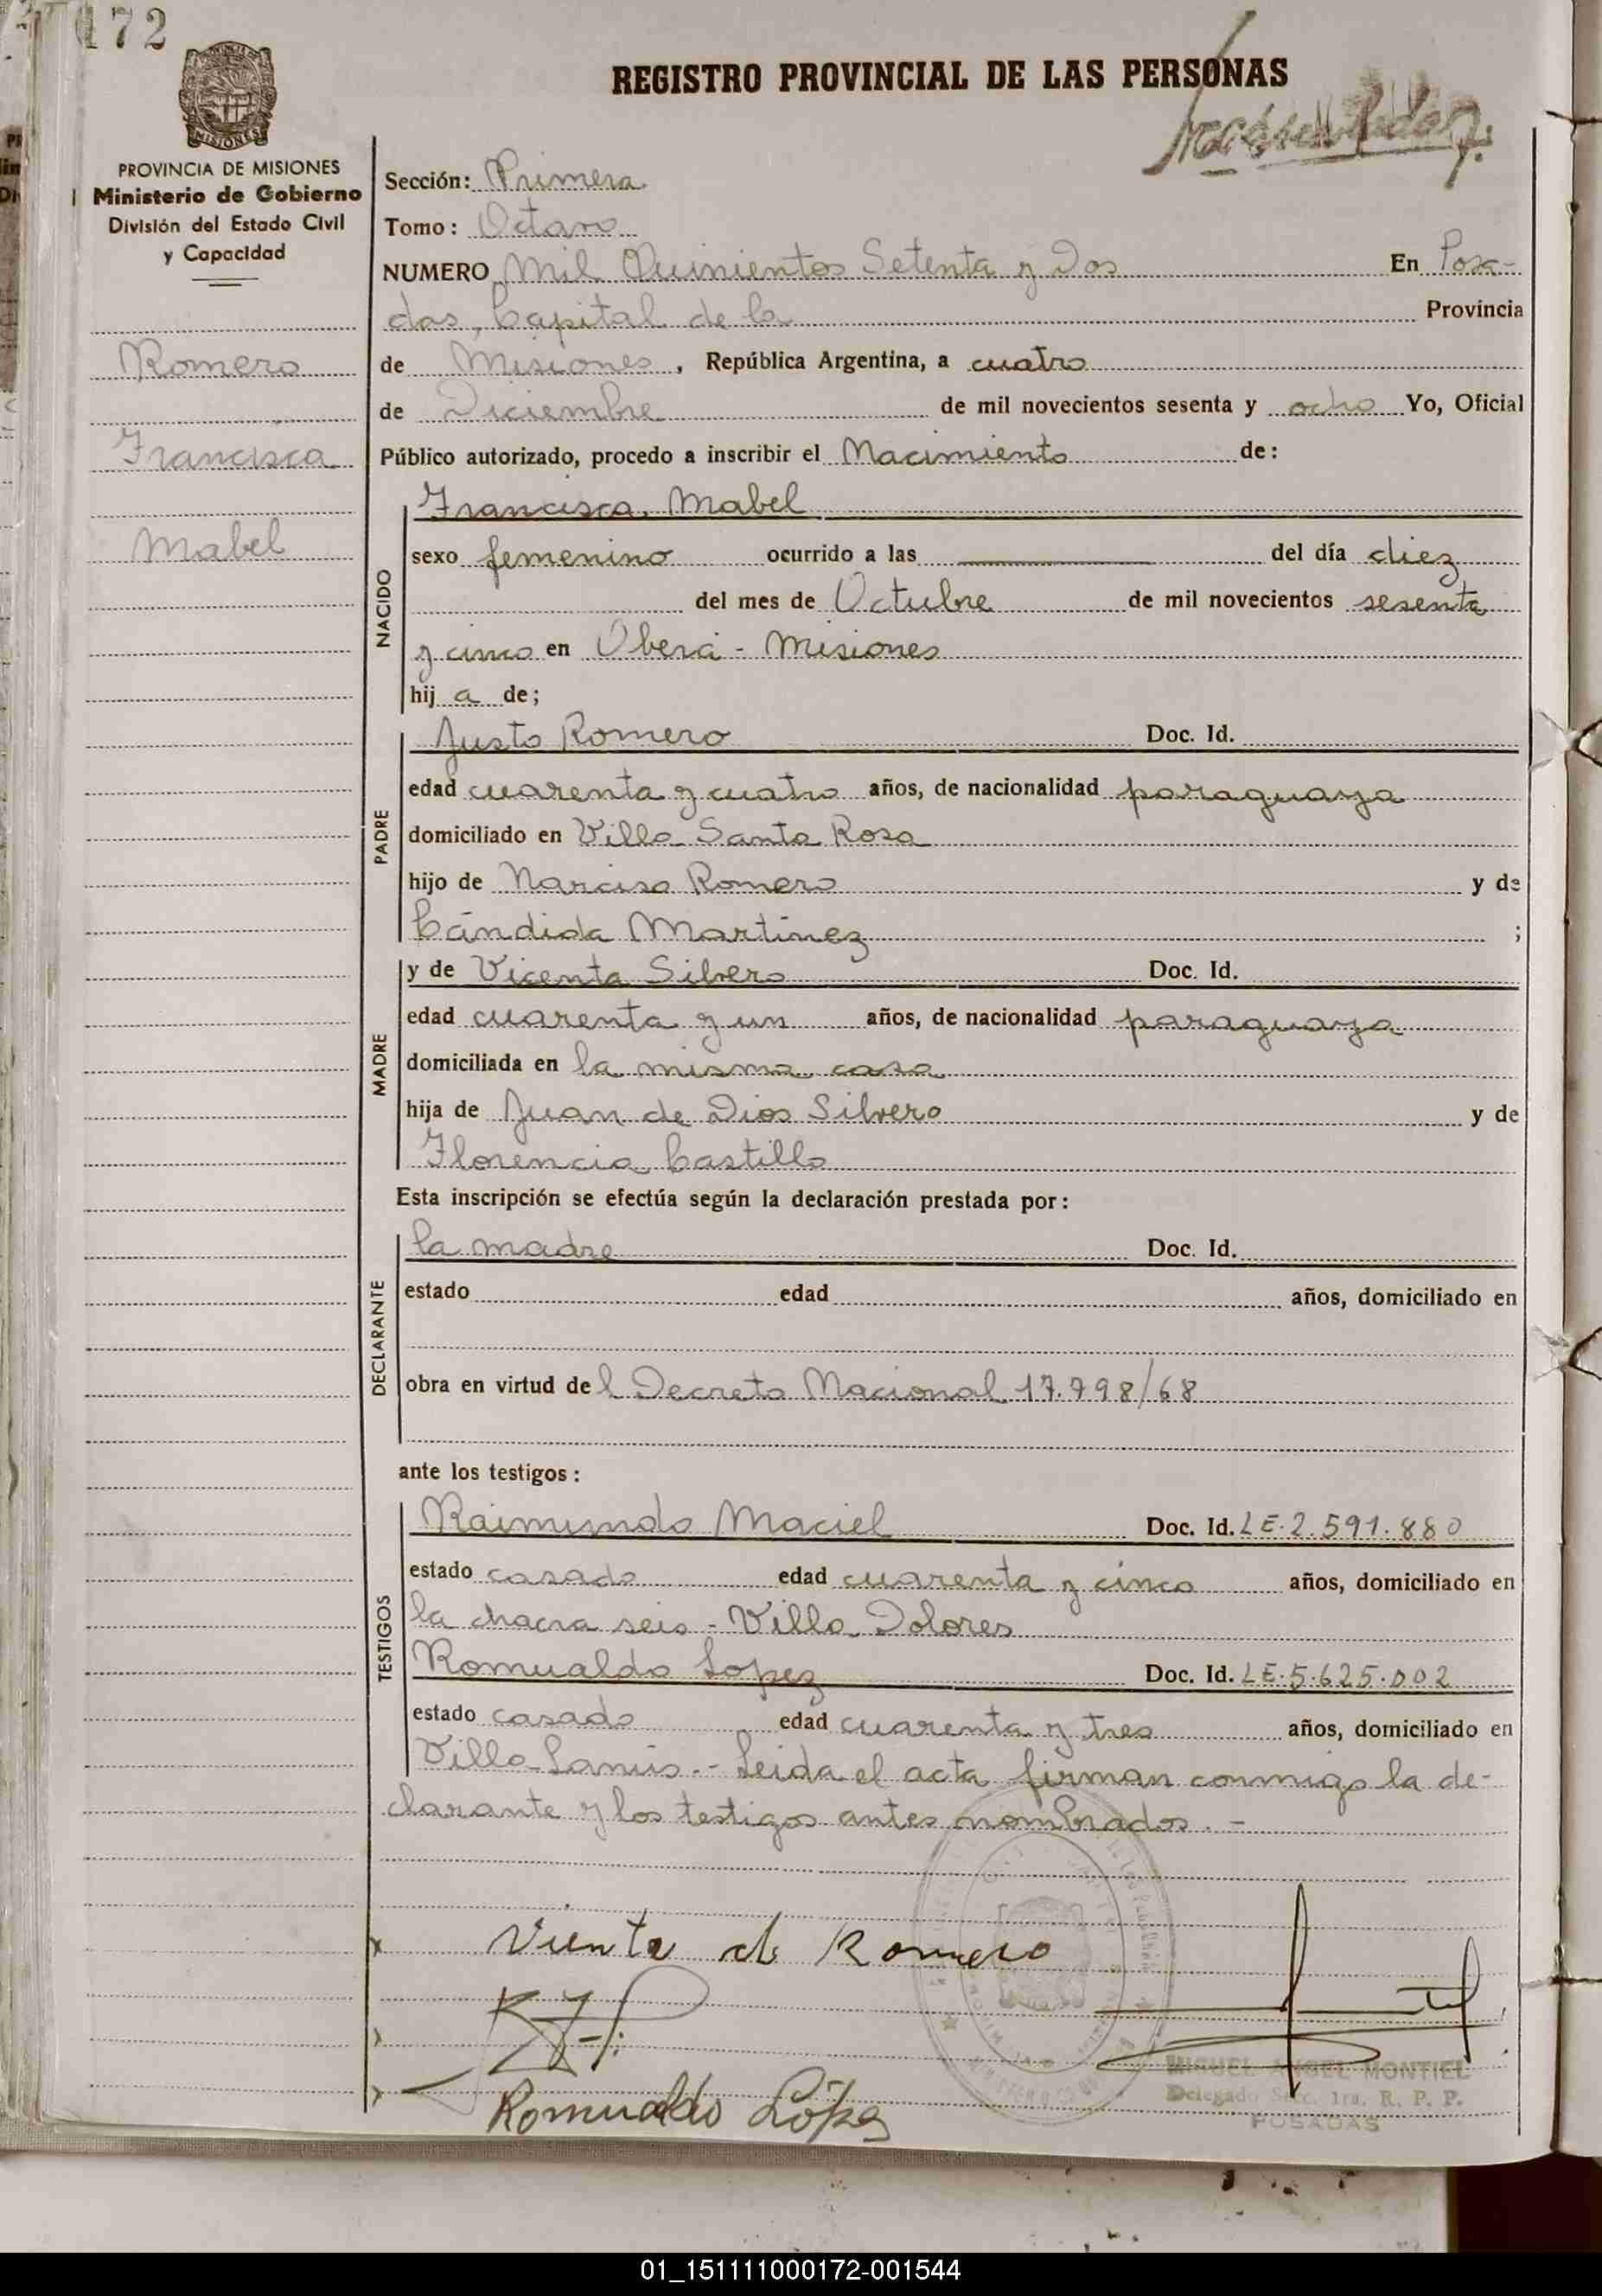 172
REGISTRO PROVINCIAL DE LAS PERSONAS
MISIONES
PROVINCIA DE MISIONES
Ministerio de Gobierno
División del Estado Civil
y Capacidad
Romero
Francisca
Mabel
Sección: Primera
Tomo: Octavo
NUMERO Mil Quinientos Setenta y Dos En Posa-
das, Capital de la Provincia
de Misiones, República Argentina, a cuatro
de Diciembre de mil novecientos sesenta y ocho Yo, Oficial
Público autorizado, procedo a inscribir el Nacimiento de:
NACIDO
Francisca Mabel
sexo femenino ocurrido a las del día diez
del mes de Octubre de mil novecientos sesenta
y cinco en Oberá - Misiones
hij a de;
PADRE
Justo Romero Doc. Id.
edad cuarenta y cuatro años, de nacionalidad paraguaya
domiciliado en Villa Santa Rosa
hijo de Narciso Romero y de
Cándida Martínez ;
MADRE
y de Vicenta Silvero Doc. Id.
edad cuarenta y un años, de nacionalidad paraguaya
domiciliada en la misma casa
hija de Juan de Dios Silvero y de
Florencia Castillo
Esta inscripción se efectúa según la declaración prestada por:
DECLARANTE
la madre Doc. Id.
estado edad años, domiciliado en
obra en virtud de l Decreto Nacional 17.798/68
ante los testigos:
TESTIGOS
Raimundo Maciel Doc. Id. LE.2.591.880
estado casado edad cuarenta y cinco años, domiciliado en
la chacra seis - Villa Dolores
Romualdo Lopez Doc. Id. LE.5.625.002
estado casado edad cuarenta y tres años, domiciliado en
Villa Lanús.- Leida el acta firman conmigo la de-
clarante y los testigos antes nombrados.-
Vicenta de Romero
Romualdo López
MIGUEL ANGEL MONTIEL
Delegado Secc. 1ra. R. P. P.
POSADAS
01_151111000172-001544